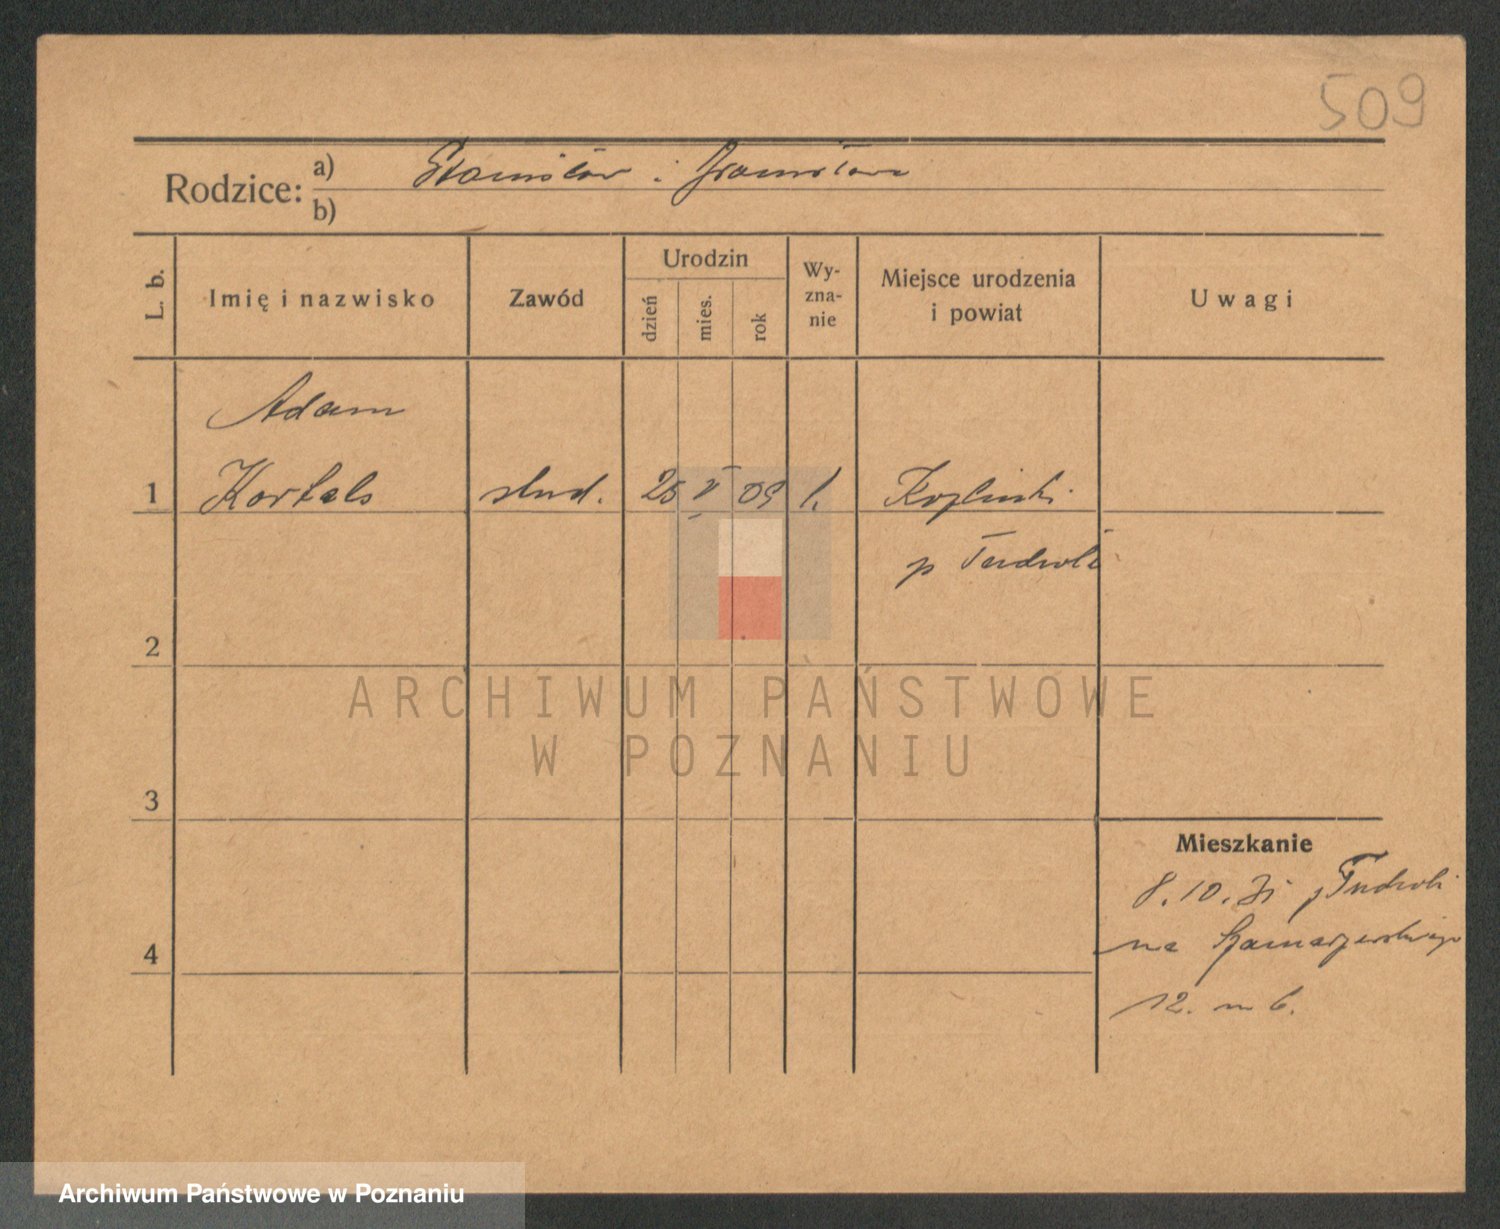 509
Rodzice: a) Stanisław i Bronisława
b)
L. b.
Imię i nazwisko
Zawód
Urodzin
dzień
mies.
rok
Wy-
zna-
nie
Miejsce urodzenia
i powiat
Uwagi
Adam
1 Kortals stud. 25 V 09
p
2
ARCHIWUM PAŃSTWOWE
W POZNANIU
3
Mieszkanie
8.10.31
na Szamarzewskiego
4
12. m 6.
Archiwum Państwowe w Poznaniu